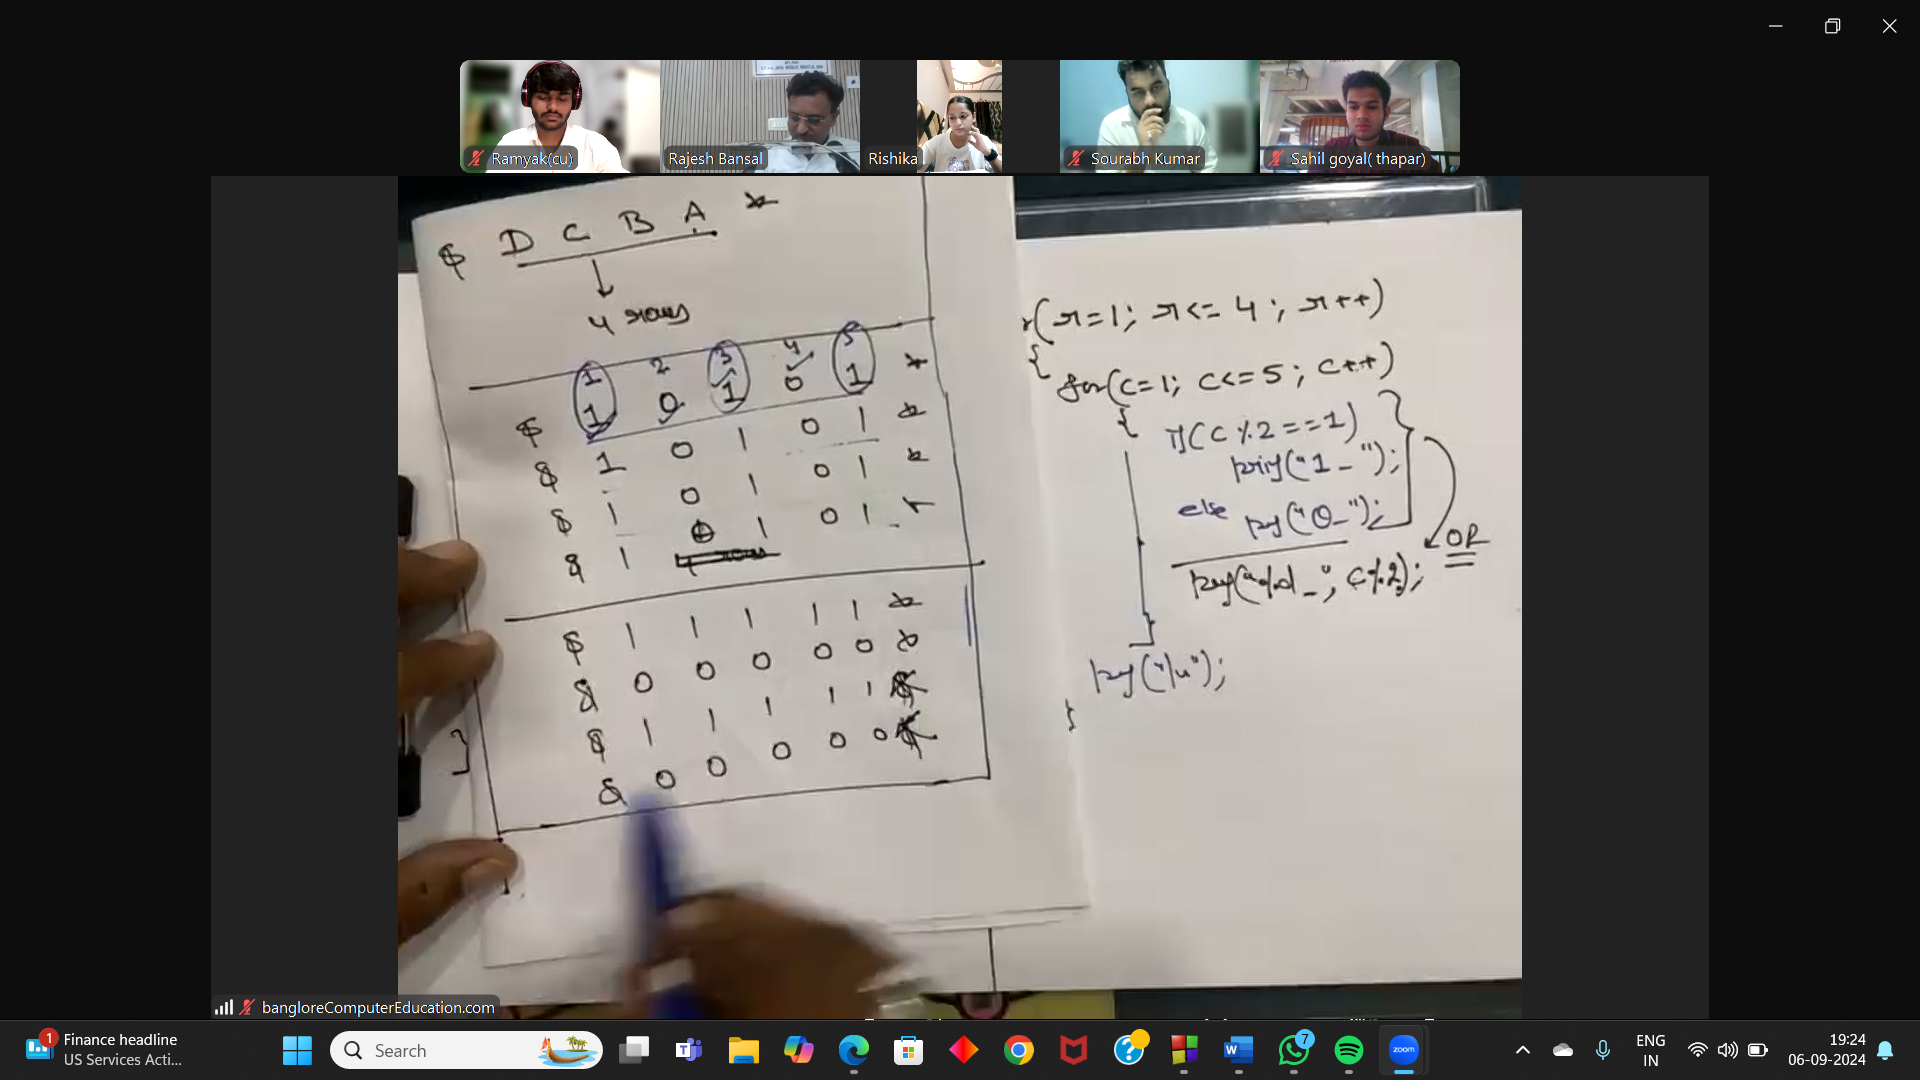 Ramyak(cu)
Rajesh Bansal
Rishika
Sourabh Kumar
Sahil goyal( thapar)
$ D C B A *
↓
4 rows
1 2 3 4 5
$ 1 0 1 0 1 *
$ 1 0 1 0 1 *
$ 1 0 1 0 1 *
$ 1 0 1 0 1
$ 1 1 1 1 1 *
$ 0 0 0 0 0 *
$ 1 1 1 1 1 *
$ 0 0 0 0 0 *
}
r(r=1; r<= 4; r++)
{
for(c=1; c<=5; c++)
{
if(c%2==1)
printf("1_");
else pf("0_");
OR
pf("%d_", c%2);
}
pf("\n");
}
bangloreComputerEducation.com
1
Finance headline
US Services Acti...
Search
W
7
zoom
ENG
IN
19:24
06-09-2024